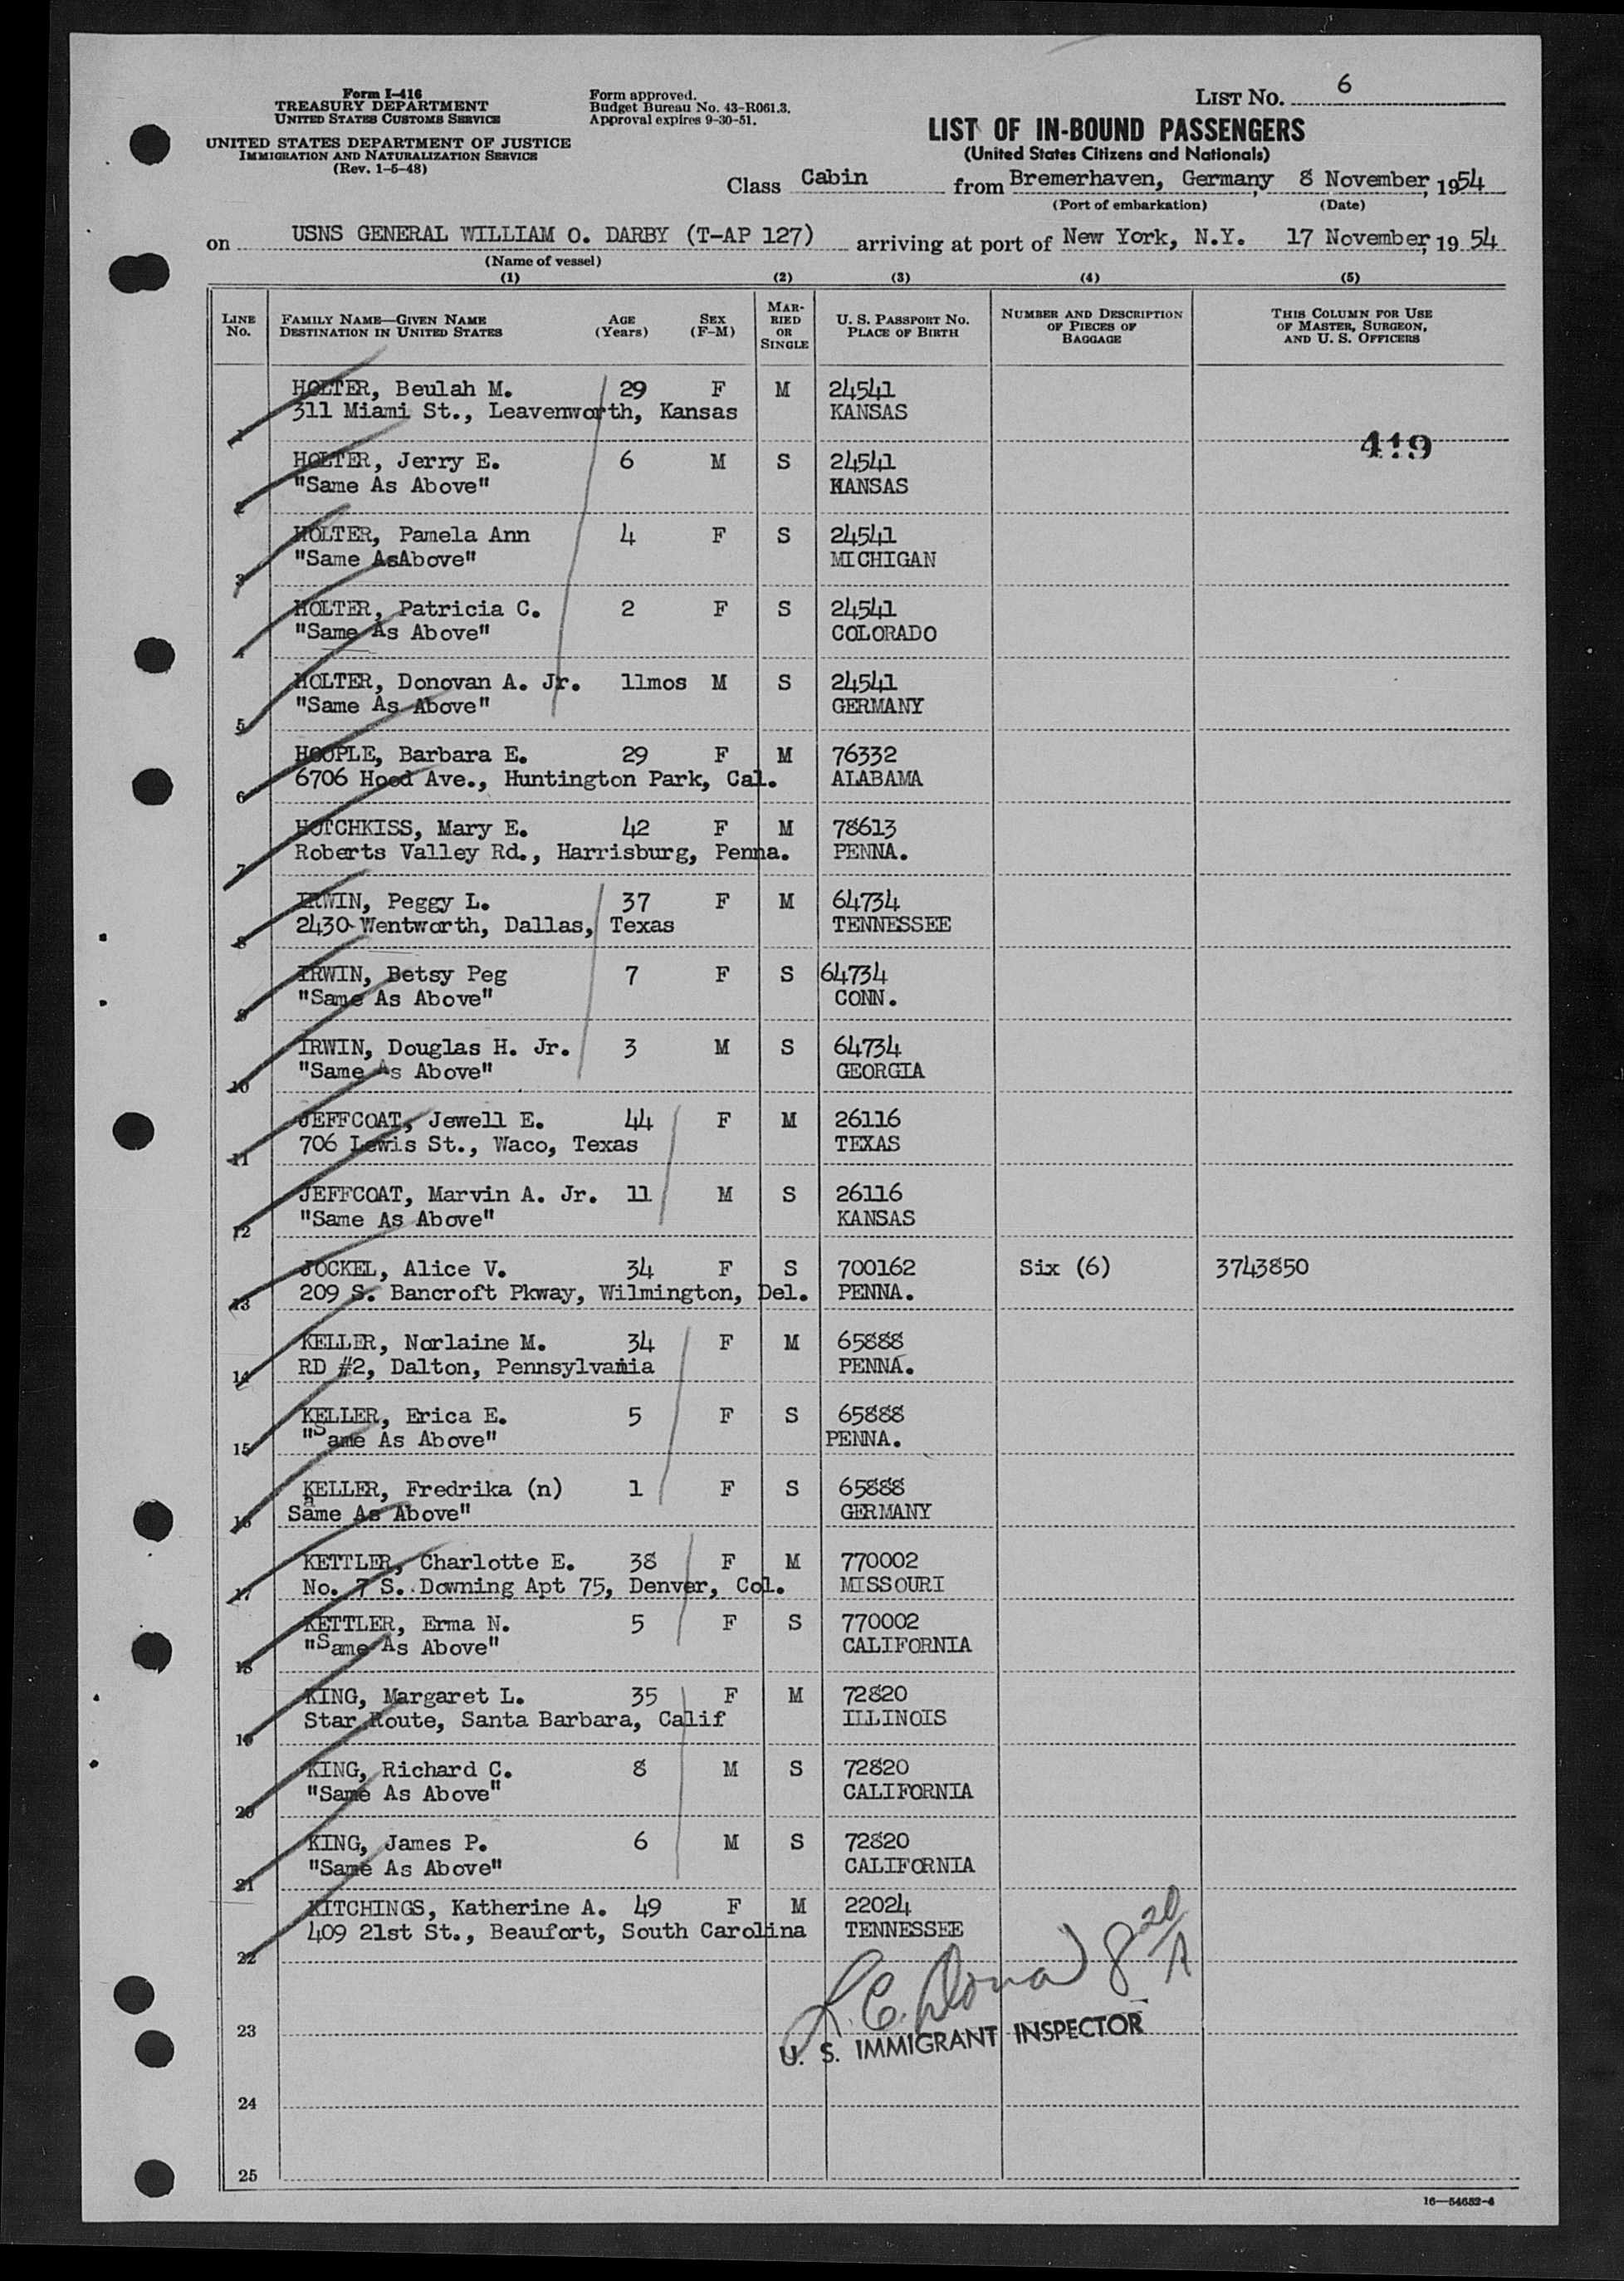 Form I-416
TREASURY DEPARTMENT
UNITED STATES CUSTOMS SERVICE
UNITED STATES DEPARTMENT OF JUSTICE
IMMIGRATION AND NATURALIZATION SERVICE
(Rev. 1-5-48)
Form approved.
Budget Bureau No. 43-R061.3.
Approval expires 9-30-51.
LIST NO. 6
LIST OF IN-BOUND PASSENGERS
(United States Citizens and Nationals)
Class Cabin from Bremerhaven, Germany, 8 November, 1954
(Port of embarkation) (Date)
on USNS GENERAL WILLIAM O. DARBY (T-AP 127) arriving at port of New York, N.Y. 17 November, 1954
(Name of vessel)
(1) (2) (3) (4) (5)
LINE No. FAMILY NAME—GIVEN NAME DESTINATION IN UNITED STATES AGE (Years) SEX (F-M) MARRIED OR SINGLE U. S. PASSPORT NO. PLACE OF BIRTH NUMBER AND DESCRIPTION OF PIECES OF BAGGAGE THIS COLUMN FOR USE OF MASTER, SURGEON, AND U. S. OFFICERS
HOLTER, Beulah M. 29 F M 24541
1 311 Miami St., Leavenworth, Kansas KANSAS
419
HOLTER, Jerry E. 6 M S 24541
2 "Same As Above" KANSAS
HOLTER, Pamela Ann 4 F S 24541
3 "Same AsAbove" MICHIGAN
HOLTER, Patricia C. 2 F S 24541
4 "Same As Above" COLORADO
HOLTER, Donovan A. Jr. 11mos M S 24541
5 "Same As Above" GERMANY
HOOPLE, Barbara E. 29 F M 76332
6 6706 Hood Ave., Huntington Park, Cal. ALABAMA
HOTCHKISS, Mary E. 42 F M 78613
7 Roberts Valley Rd., Harrisburg, Penna. PENNA.
IRWIN, Peggy L. 37 F M 64734
8 2430 Wentworth, Dallas, Texas TENNESSEE
IRWIN, Betsy Peg 7 F S 64734
9 "Same As Above" CONN.
IRWIN, Douglas H. Jr. 3 M S 64734
10 "Same As Above" GEORGIA
JEFFCOAT, Jewell E. 44 F M 26116
11 706 Lewis St., Waco, Texas TEXAS
JEFFCOAT, Marvin A. Jr. 11 M S 26116
12 "Same As Above" KANSAS
JOCKEL, Alice V. 34 F S 700162 Six (6) 3743850
13 209 S. Bancroft Pkway, Wilmington, Del. PENNA.
KELLER, Norlaine M. 34 F M 65888
14 RD #2, Dalton, Pennsylvania PENNA.
KELLER, Erica E. 5 F S 65888
15 "Same As Above" PENNA.
KELLER, Fredrika (n) 1 F S 65888
16 Same As Above" GERMANY
KETTLER, Charlotte E. 38 F M 770002
17 No. 7 S. Downing Apt 75, Denver, Col. MISSOURI
KETTLER, Erma N. 5 F S 770002
18 "Same As Above" CALIFORNIA
KING, Margaret L. 35 F M 72820
19 Star Route, Santa Barbara, Calif ILLINOIS
KING, Richard C. 8 M S 72820
20 "Same As Above" CALIFORNIA
KING, James P. 6 M S 72820
21 "Same As Above" CALIFORNIA
KITCHINGS, Katherine A. 49 F M 22024
22 409 21st St., Beaufort, South Carolina TENNESSEE
23
U. S. IMMIGRANT INSPECTOR
24
25
16—54652-4